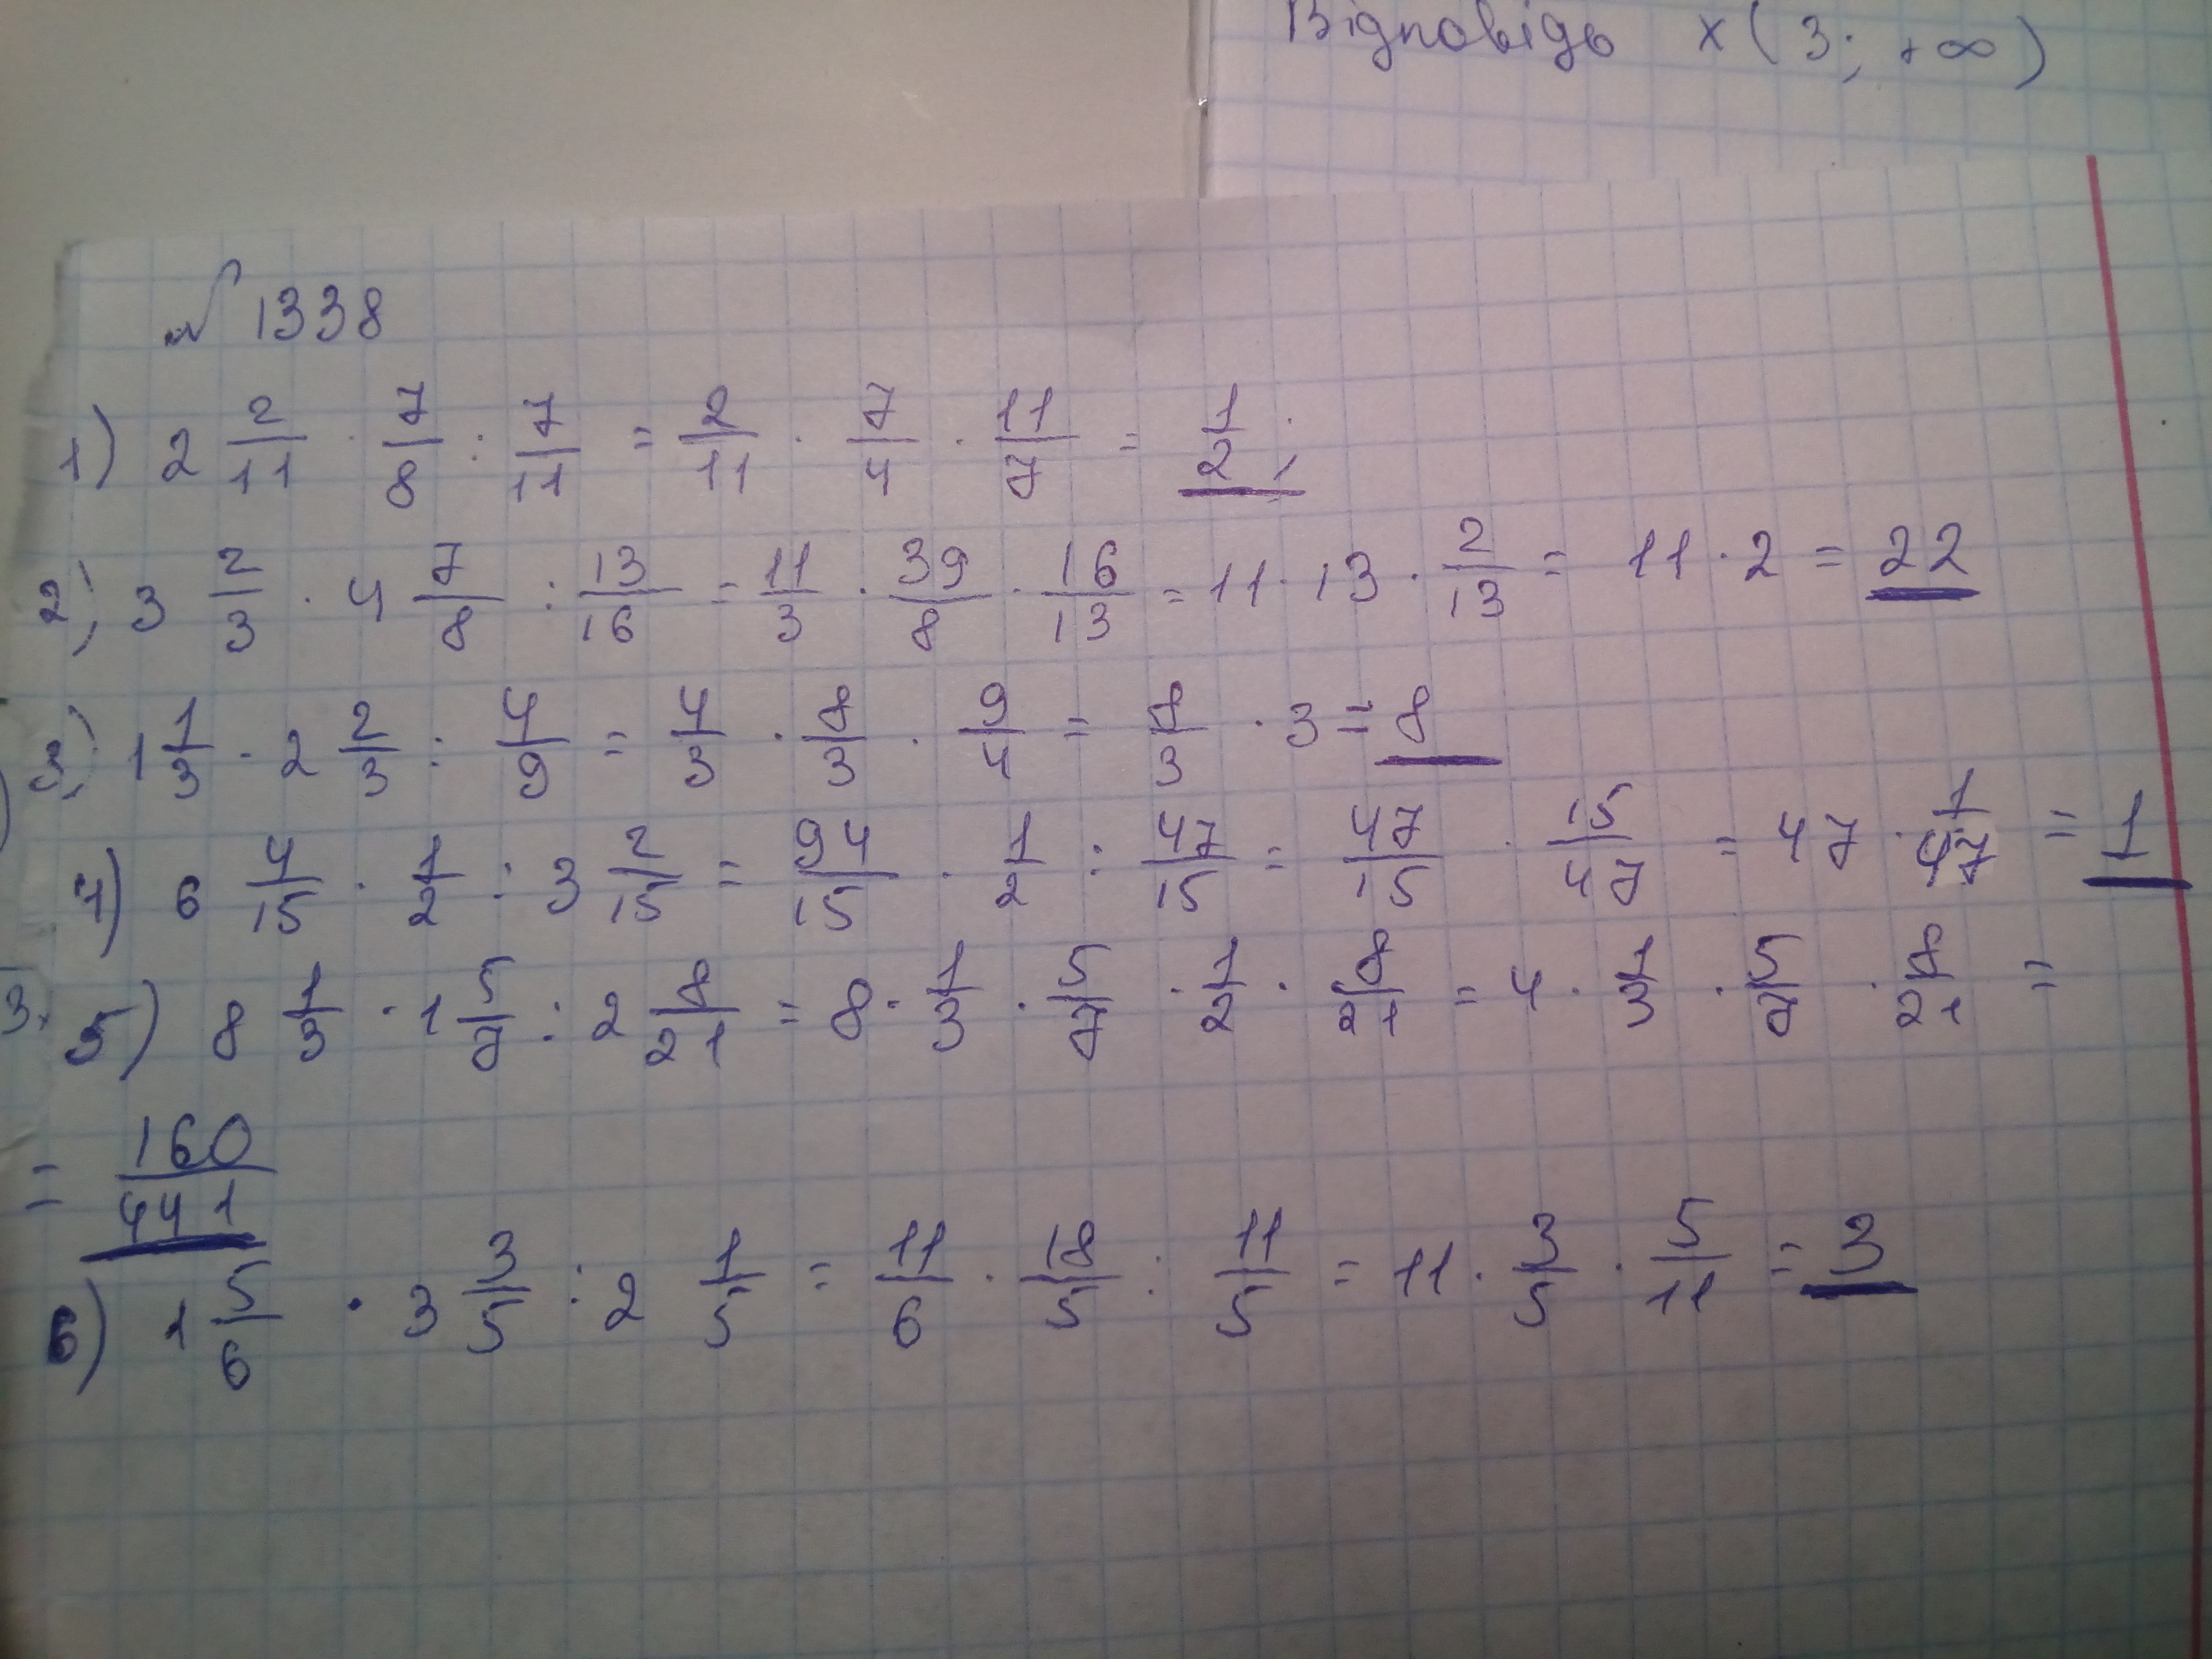 Відповідь x(3; +∞)
№1338
1) 2 2/11 · 7/8 : 7/11 = 2/11 · 7/4 · 11/7 = 1/2;
2) 3 2/3 · 4 7/8 : 13/16 = 11/3 · 39/8 · 16/13 = 11 · 13 · 2/13 = 11 · 2 = 22
3) 1 1/3 · 2 2/3 : 4/9 = 4/3 · 8/3 · 9/4 = 8/3 · 3 = 8
4) 6 4/15 · 1/2 : 3 2/15 = 94/15 · 1/2 : 47/15 = 47/15 · 15/47 = 47 · 1/47 = 1
5) 8 1/3 · 1 5/7 : 2 8/21 = 8 · 1/3 · 5/7 · 1/2 · 8/21 = 4 · 1/3 · 5/7 · 8/21 =
= 160/441
6) 1 5/6 · 3 3/5 : 2 1/5 = 11/6 · 18/5 : 11/5 = 11 · 3/5 · 5/11 = 3